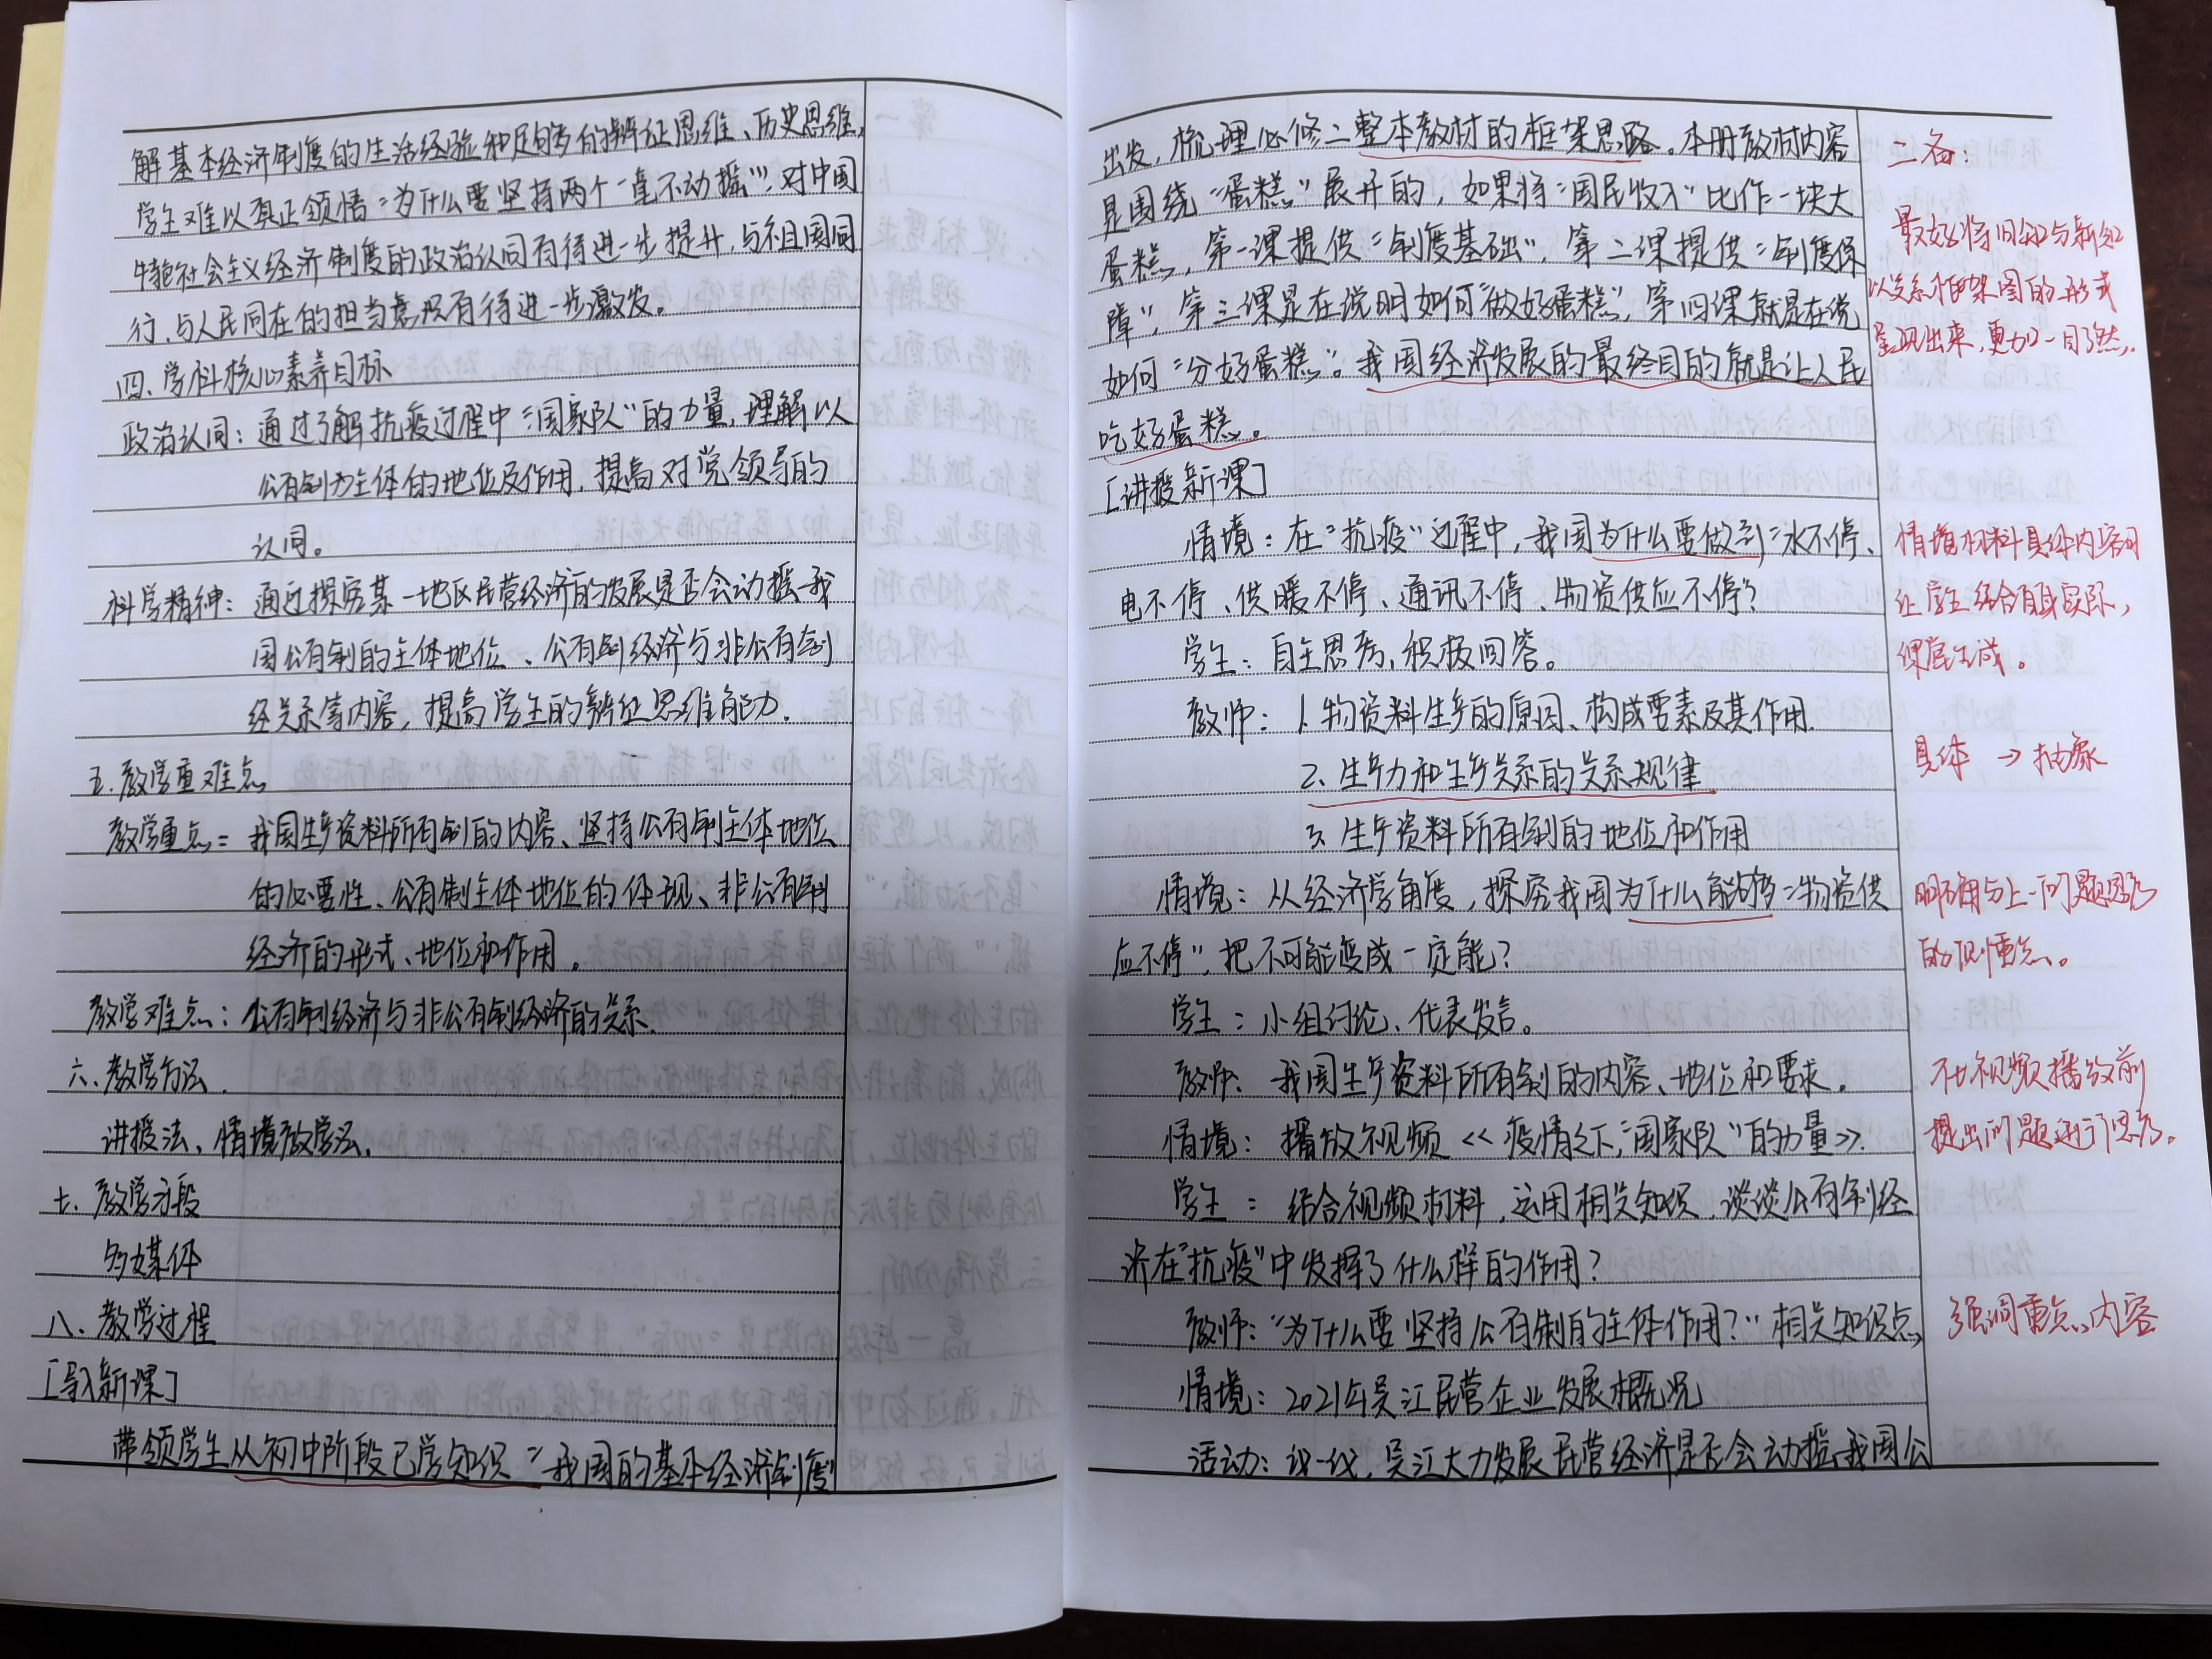 解基本经济制度的生活经验和足够的辩证思维、历史思维,
学生难以真正领悟“为什么要坚持两个‘毫不动摇’”,对中国
特色社会主义经济制度的政治认同有待进一步提升,与祖国同
行、与人民同在的担当意识有待进一步激发。
四、学科核心素养目标
政治认同:通过了解抗疫过程中“国家队”的力量,理解以
公有制为主体的地位及作用,提高对党领导的
认同。
科学精神:通过探究某一地区民营经济的发展是否会动摇我
国公有制的主体地位、公有制经济与非公有制
经关系等内容,提高学生的辩证思维能力。
五、教学重难点
教学重点:我国生产资料所有制的内容、坚持公有制主体地位
的必要性、公有制主体地位的体现、非公有制
经济的形式、地位和作用。
教学难点:公有制经济与非公有制经济的关系.
六、教学方法.
讲授法、情境教学法.
七、教学手段
多媒体
八、教学过程
[导入新课]
带领学生从初中阶段已学知识“我国的基本经济制度”
出发,梳理必修二整本教材的框架思路。本册教材内容
是围绕“蛋糕”展开的,如果将“国民收入”比作一块大
蛋糕,第一课提供“制度基础”,第二课提供“制度保
障”,第三课是在说明如何“做好蛋糕”,第四课就是在说
如何“分好蛋糕”。我国经济发展的最终目的就是让人民
吃好蛋糕。
[讲授新课]
情境:在“抗疫”过程中,我国为什么要做到“水不停、
电不停、供暖不停、通讯不停、物资供应不停?
学生:自主思考,积极回答。
教师:1.物资料生产的原因、构成要素及其作用.
2.生产力和生产关系的关系规律
3.生产资料所有制的地位和作用
情境:从经济学角度,探究我国为什么能够“物资供
应不停”,把不可能变成一定能?
学生:小组讨论、代表发言。
教师:我国生产资料所有制的内容、地位和要求.
情境:播放视频《疫情之下,“国家队”的力量》.
学生:结合视频材料,运用相关知识,谈谈公有制经
济在“抗疫”中发挥了什么样的作用?
教师:“为什么要坚持公有制的主体作用?”相关知识点
情境:2021年吴江民营企业发展概况
活动:议一议,吴江大力发展民营经济是否会动摇我国公
二备:
最好将旧知与新知
以关系框架图的形式
呈现出来,更加一目了然.
情境材料具体内容可
让学生结合自身实际,
课堂生成。
具体→抽象
明确与上一问题图
的侧重点。
在视频播放前
提出问题进行思考。
强调重点内容